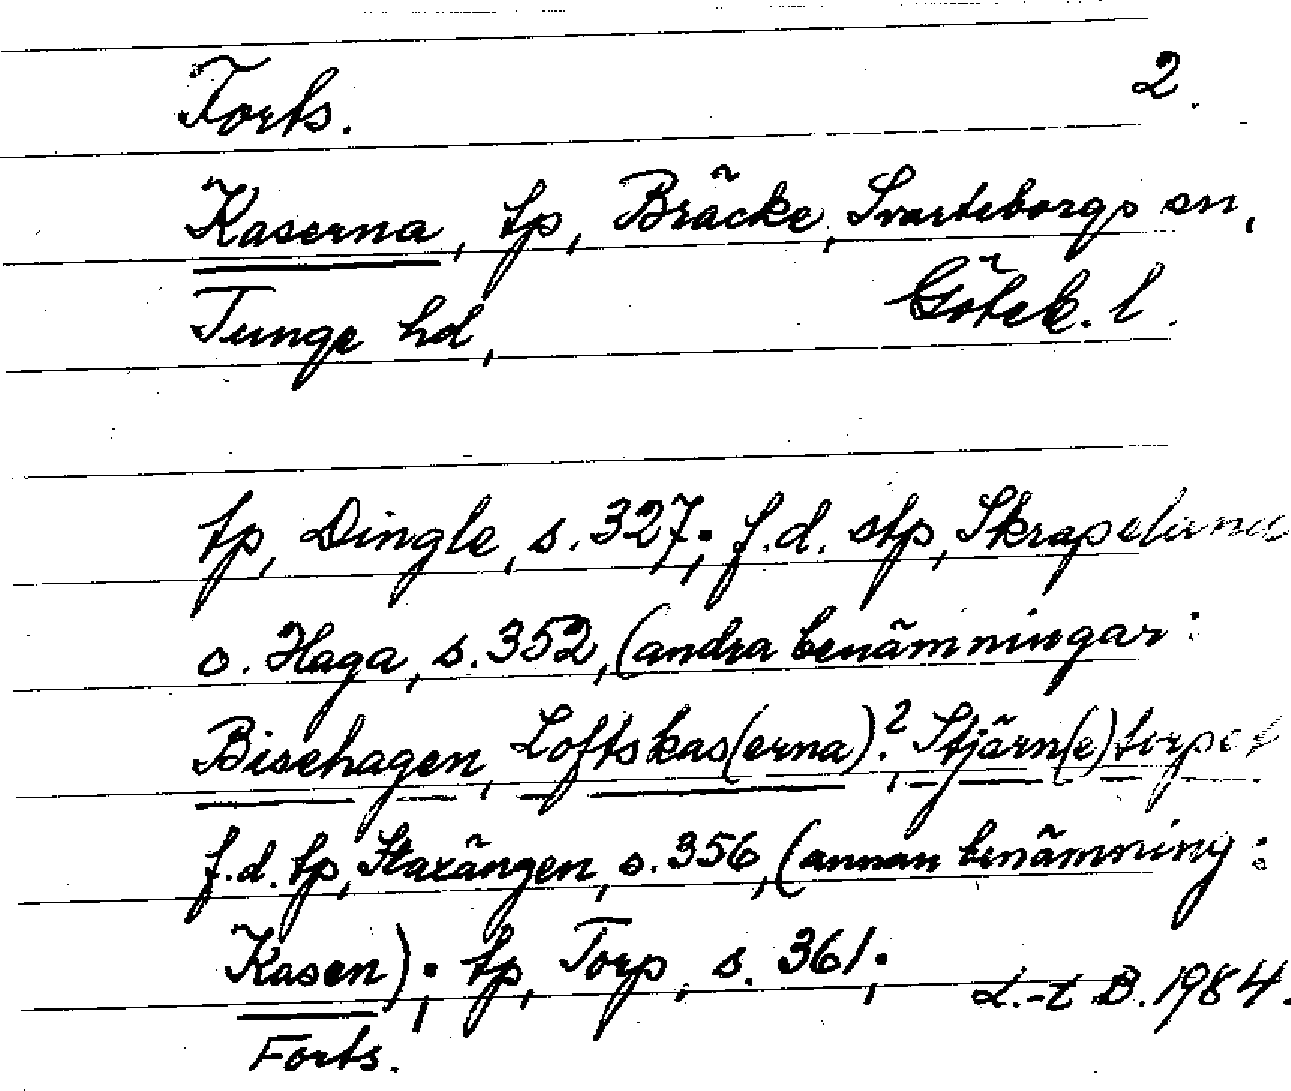 Forts. 2.
Kaserna, tp, Bräcke, Svarteborgs sn,
Tunge hd, Göteb. l.
tp, Dingle, s. 327; f.d. stp, Skrapelund
o. Haga, s. 352, (andra benämningar:
Bisehagen, Loftskas(erna)?, Stjärn(e)torpet
f.d. tp, Staxängen, s. 356, (annan benämning:
Kasen); tp, Torp, s. 361; L.-t B. 1984.
Forts.